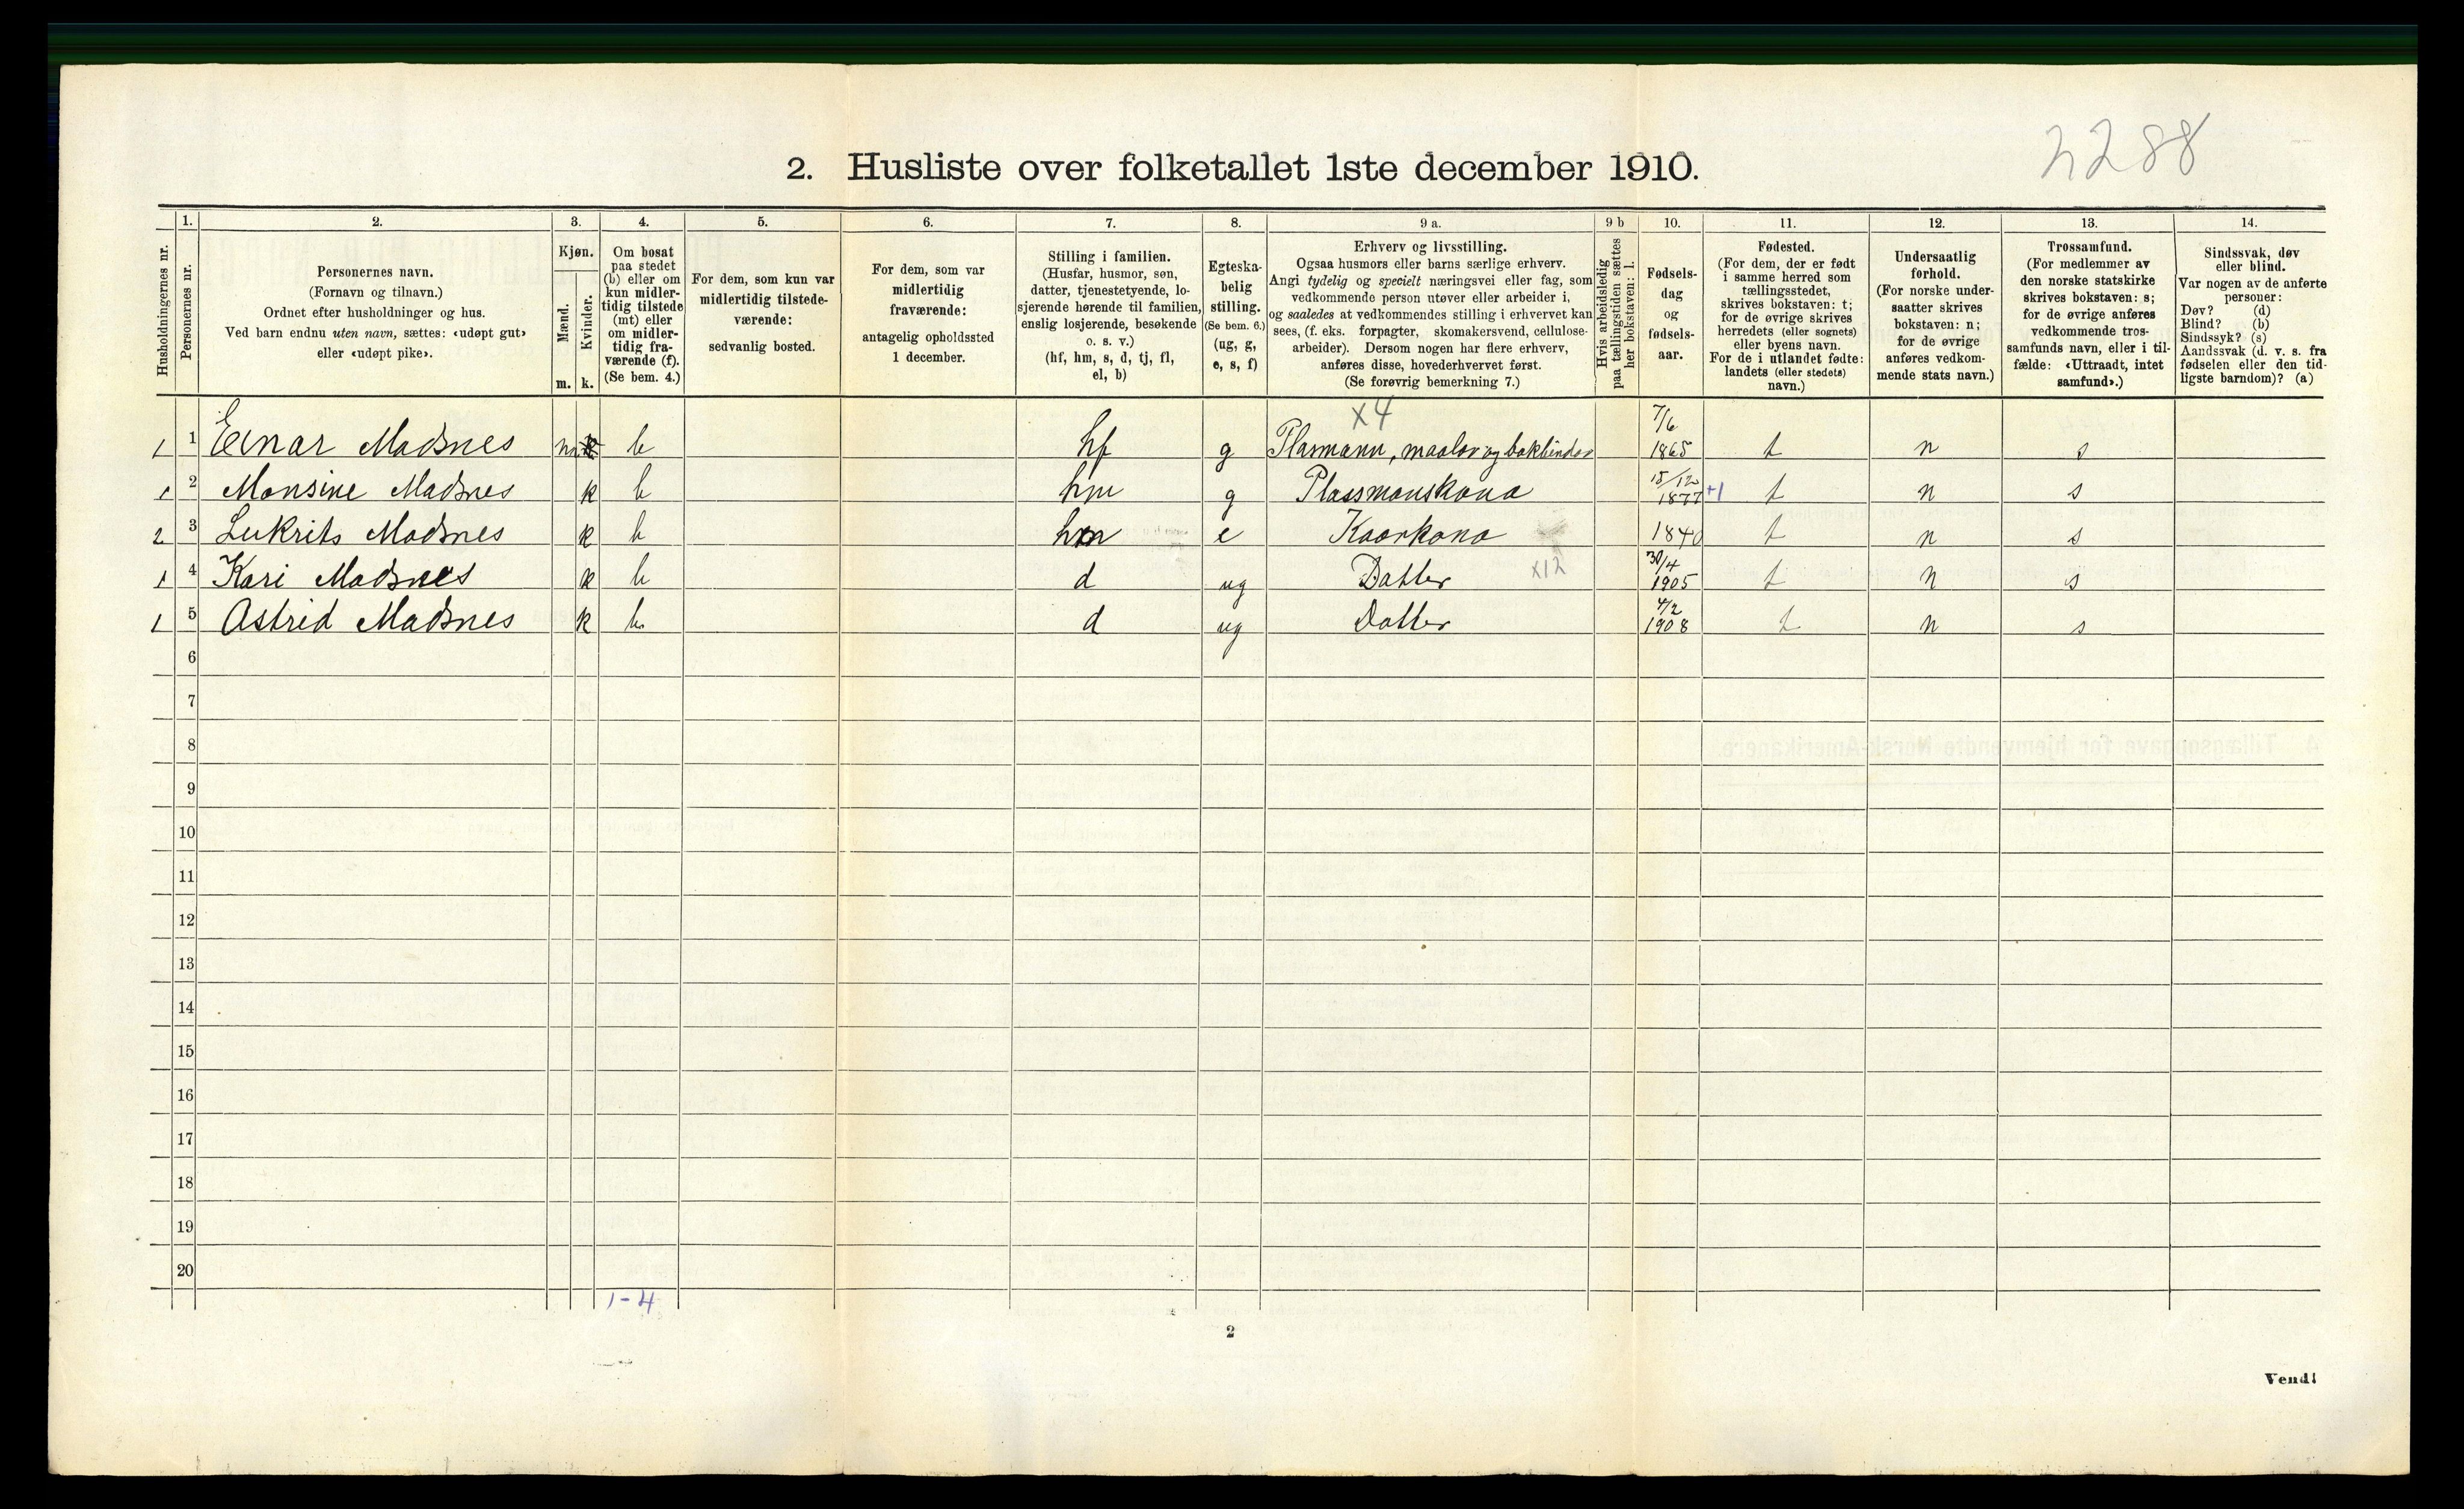 2288
2. Husliste over folketallet 1ste december 1910.
1. 2. 3. 4. 5. 6. 7. 8. 9 a. 9 b 10. 11. 12. 13. 14.
Husholdningernes nr.
Personernes nr.
Personernes navn.
(Fornavn og tilnavn.)
Ordnet efter husholdninger og hus.
Ved barn endnu uten navn, sættes: «udøpt gut»
eller «udøpt pike».
Kjøn.
Mænd.
Kvinder.
m. k.
Om bosat
paa stedet
(b) eller om
kun midler-
tidig tilstede
(mt) eller
om midler-
tidig fra-
værende (f).
(Se bem. 4.)
For dem, som kun var
midlertidig tilstede-
værende:
sedvanlig bosted.
For dem, som var
midlertidig
fraværende:
antagelig opholdssted
1 december.
Stilling i familien.
(Husfar, husmor, søn,
datter, tjenestetyende, lo-
sjerende hørende til familien,
enslig losjerende, besøkende
o. s. v.)
(hf, hm, s, d, tj, fl,
el, b)
Egteska-
belig
stilling.
(Se bem. 6.)
(ug, g,
e, s, f)
Erhverv og livsstilling.
Ogsaa husmors eller barns særlige erhverv.
Angi tydelig og specielt næringsvei eller fag, som
vedkommende person utøver eller arbeider i,
og saaledes at vedkommendes stilling i erhvervet kan
sees, (f. eks. forpagter, skomakersvend, cellulose-
arbeider). Dersom nogen har flere erhverv,
anføres disse, hovederhvervet først.
(Se forøvrig bemerkning 7.)
Hvis arbeidsledig
paa tællingstiden sættes
her bokstaven: l.
Fødsels-
dag
og
fødsels-
aar.
Fødested.
(For dem, der er født
i samme herred som
tællingsstedet,
skrives bokstaven: t;
for de øvrige skrives
herredets (eller sognets)
eller byens navn.
For de i utlandet fødte:
landets (eller stedets)
navn.)
Undersaatlig
forhold.
(For norske under-
saatter skrives
bokstaven: n;
for de øvrige
anføres vedkom-
mende stats navn.)
Trossamfund.
(For medlemmer av
den norske statskirke
skrives bokstaven: s;
for de øvrige anføres
vedkommende tros-
samfunds navn, eller i til-
fælde: «Uttraadt, intet
samfund».)
Sindssvak, døv
eller blind.
Var nogen av de anførte
personer:
Døv? (d)
Blind? (b)
Sindssyk? (s)
Aandssvak (d. v. s. fra
fødselen eller den tid-
ligste barndom)? (a)
x4
1 1 Einar Madsnes m b hf g Plasmann, maalar og bokbindar 7/6 1865 t n s
1 2 Monsine Madsnes k b hm g Plassmanskona 15/12 1877 +1 t n s
2 3 Lukrits Madsnes k b hm e Kaarkona 1840 t n s
1 4 Kari Madsnes k b d ug Datter x12 30/4 1905 t n s
1 5 Astrid Madsnes k b d ug Datter 4/2 1908 t n s
6
7
8
9
10
11
12
13
14
15
16
17
18
19
20
1-4
2
Vend!